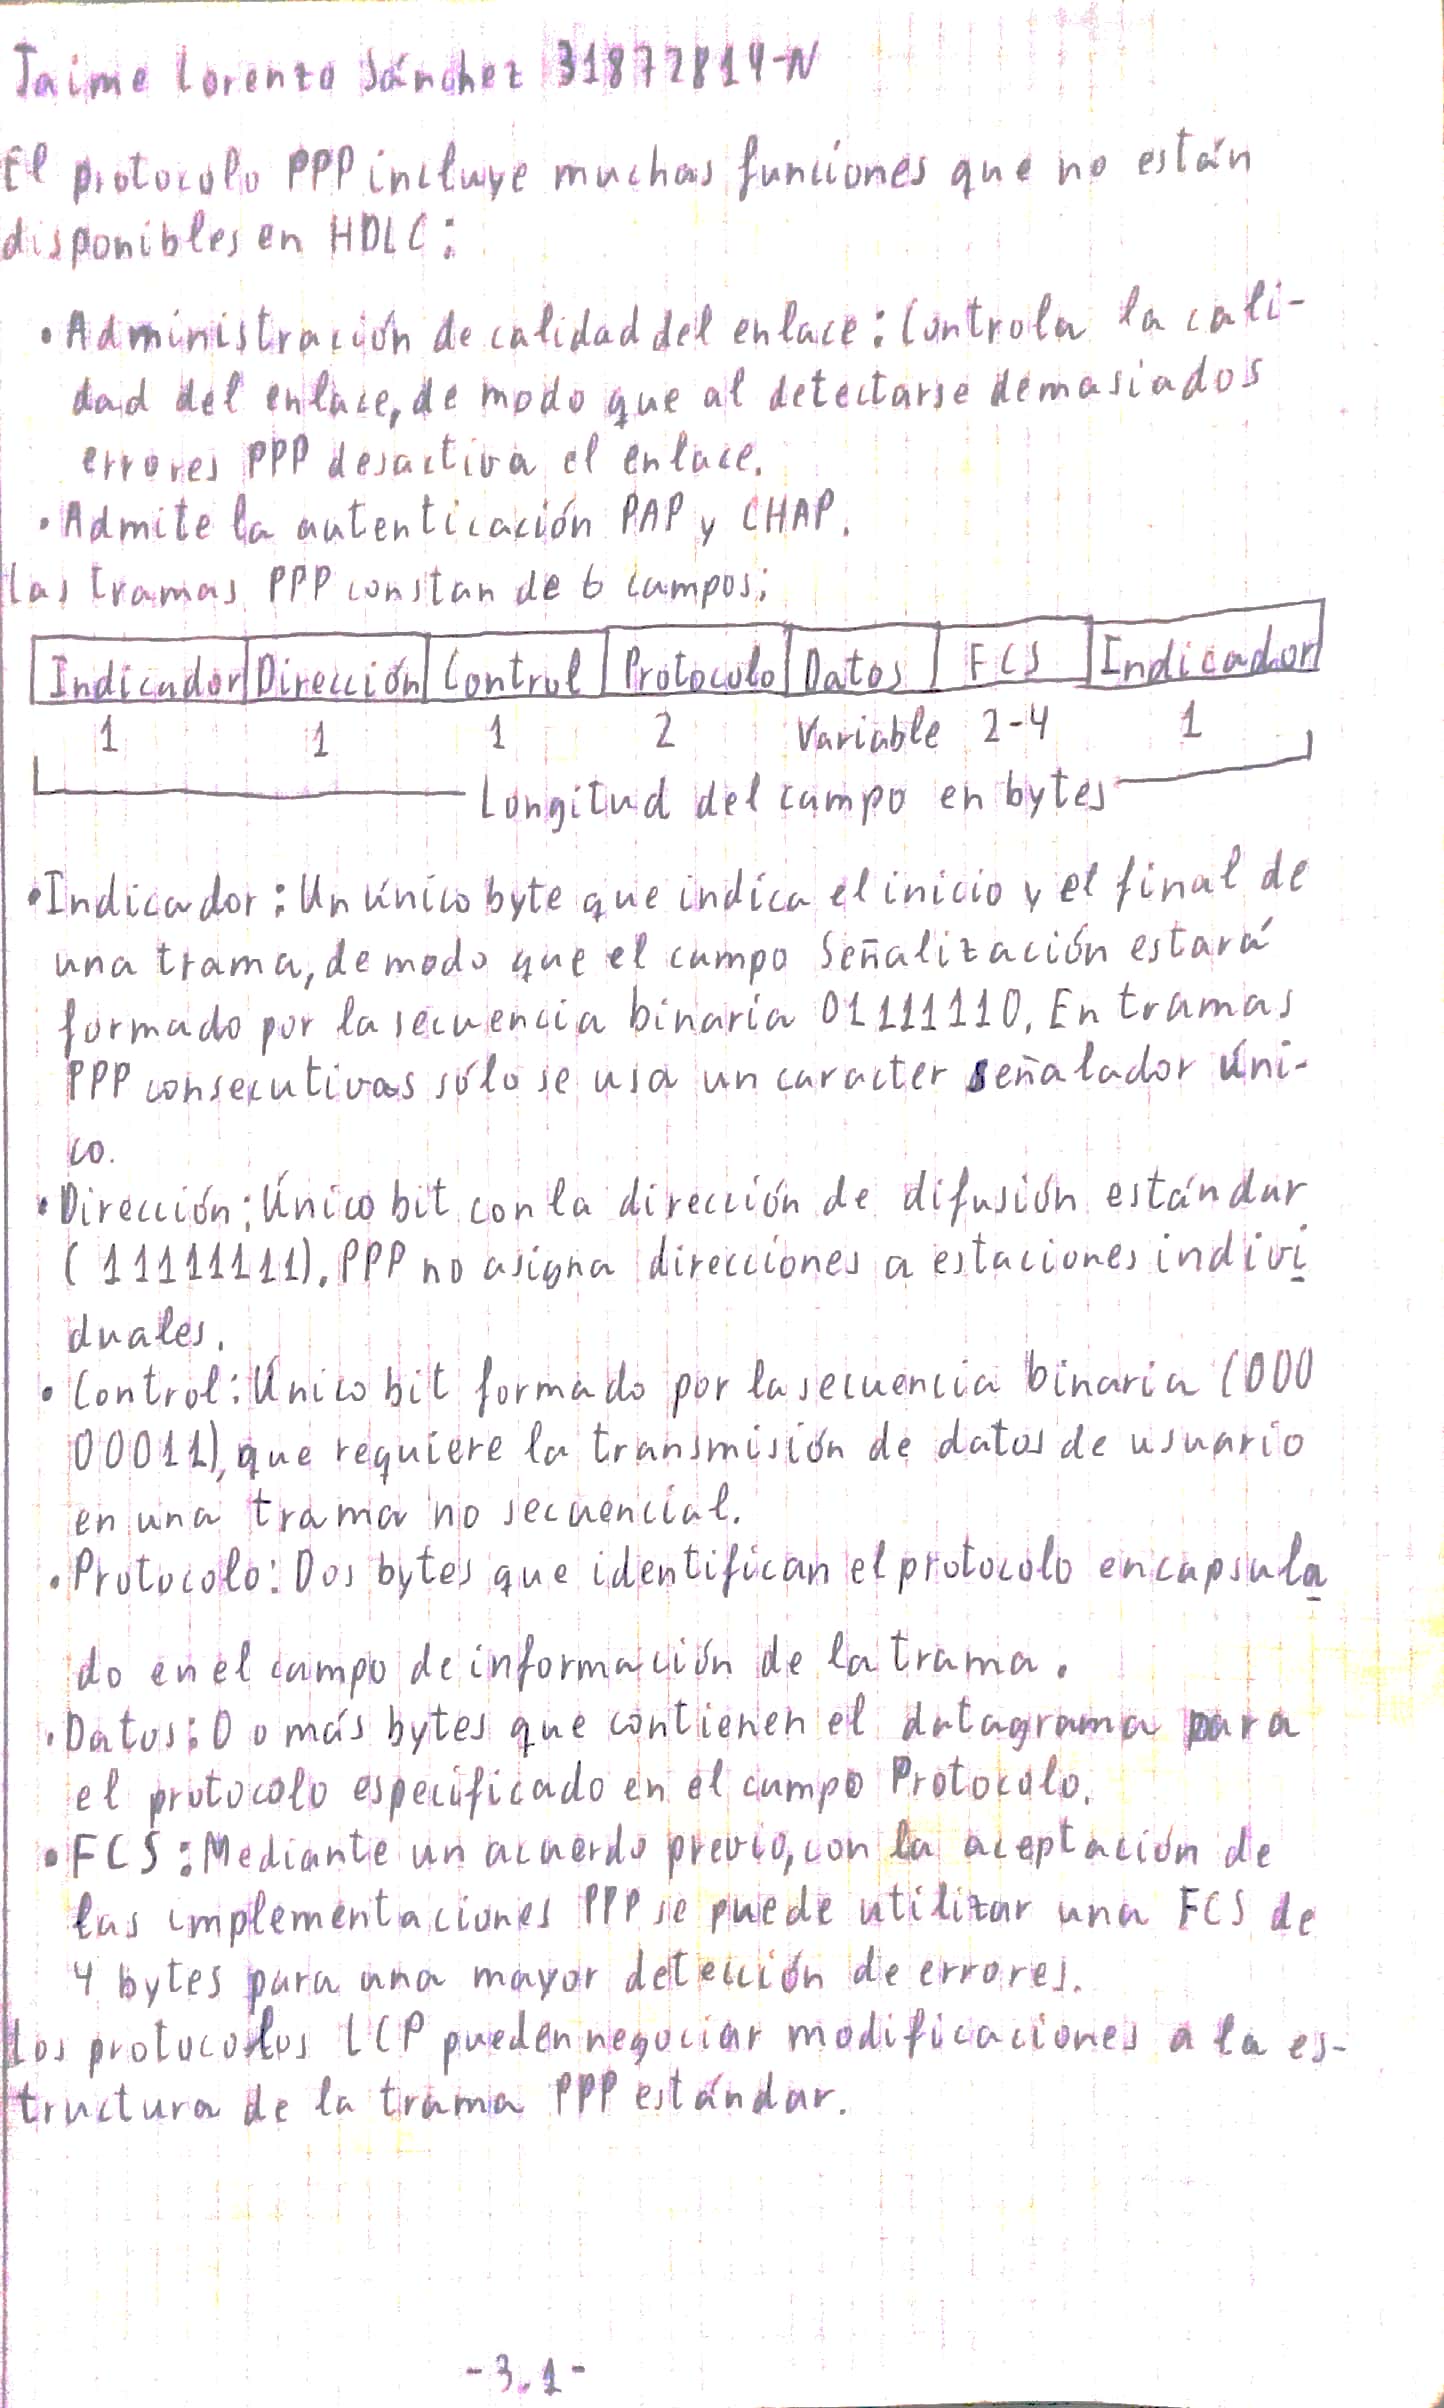 Jaime Lorenzo Sánchez 31872814-N
El protocolo PPP incluye muchas funciones que no están
disponibles en HDLC:
• Administración de calidad del enlace: Controla la cali-
dad del enlace, de modo que al detectarse demasiados
errores PPP desactiva el enlace.
• Admite la autenticación PAP y CHAP.
Las tramas PPP constan de 6 campos:
Indicador Dirección Control Protocolo Datos FCS Indicador
1 1 1 2 Variable 2-4 1
Longitud del campo en bytes
• Indicador: Un único byte que indica el inicio y el final de
una trama, de modo que el campo Señalización estará
formado por la secuencia binaria 01111110. En tramas
PPP consecutivas sólo se usa un caracter señalador úni-
co.
• Dirección: Único bit con la dirección de difusión estándar
(11111111). PPP no asigna direcciones a estaciones indivi
duales.
• Control: Único bit formado por la secuencia binaria (000
00011), que requiere la transmisión de datos de usuario
en una trama no secuencial.
• Protocolo: Dos bytes que identifican el protocolo encapsula
do en el campo de información de la trama.
• Datos: 0 o más bytes que contienen el datagrama para
el protocolo especificado en el campo Protocolo.
• FCS: Mediante un acuerdo previo, con la aceptación de
las implementaciones PPP se puede utilizar una FCS de
4 bytes para una mayor detección de errores.
Los protocolos LCP pueden negociar modificaciones a la es-
tructura de la trama PPP estándar.
-3.1-